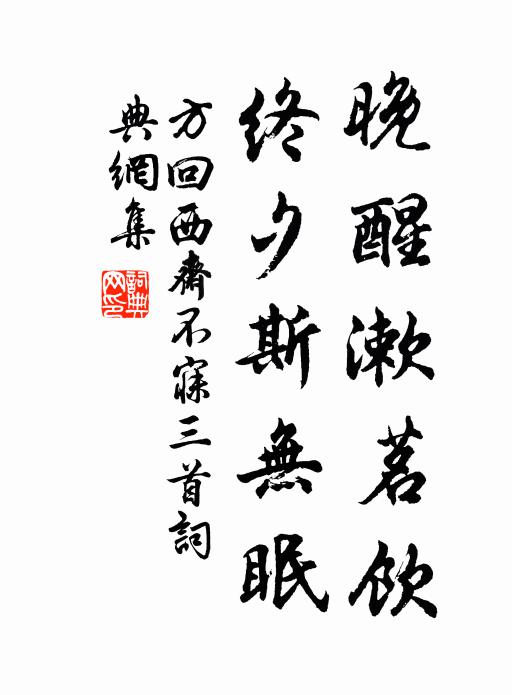 晚醒漱茗飲
終夕斯無眠
方回西齋不寐三首詞
典網集
詞典
网印